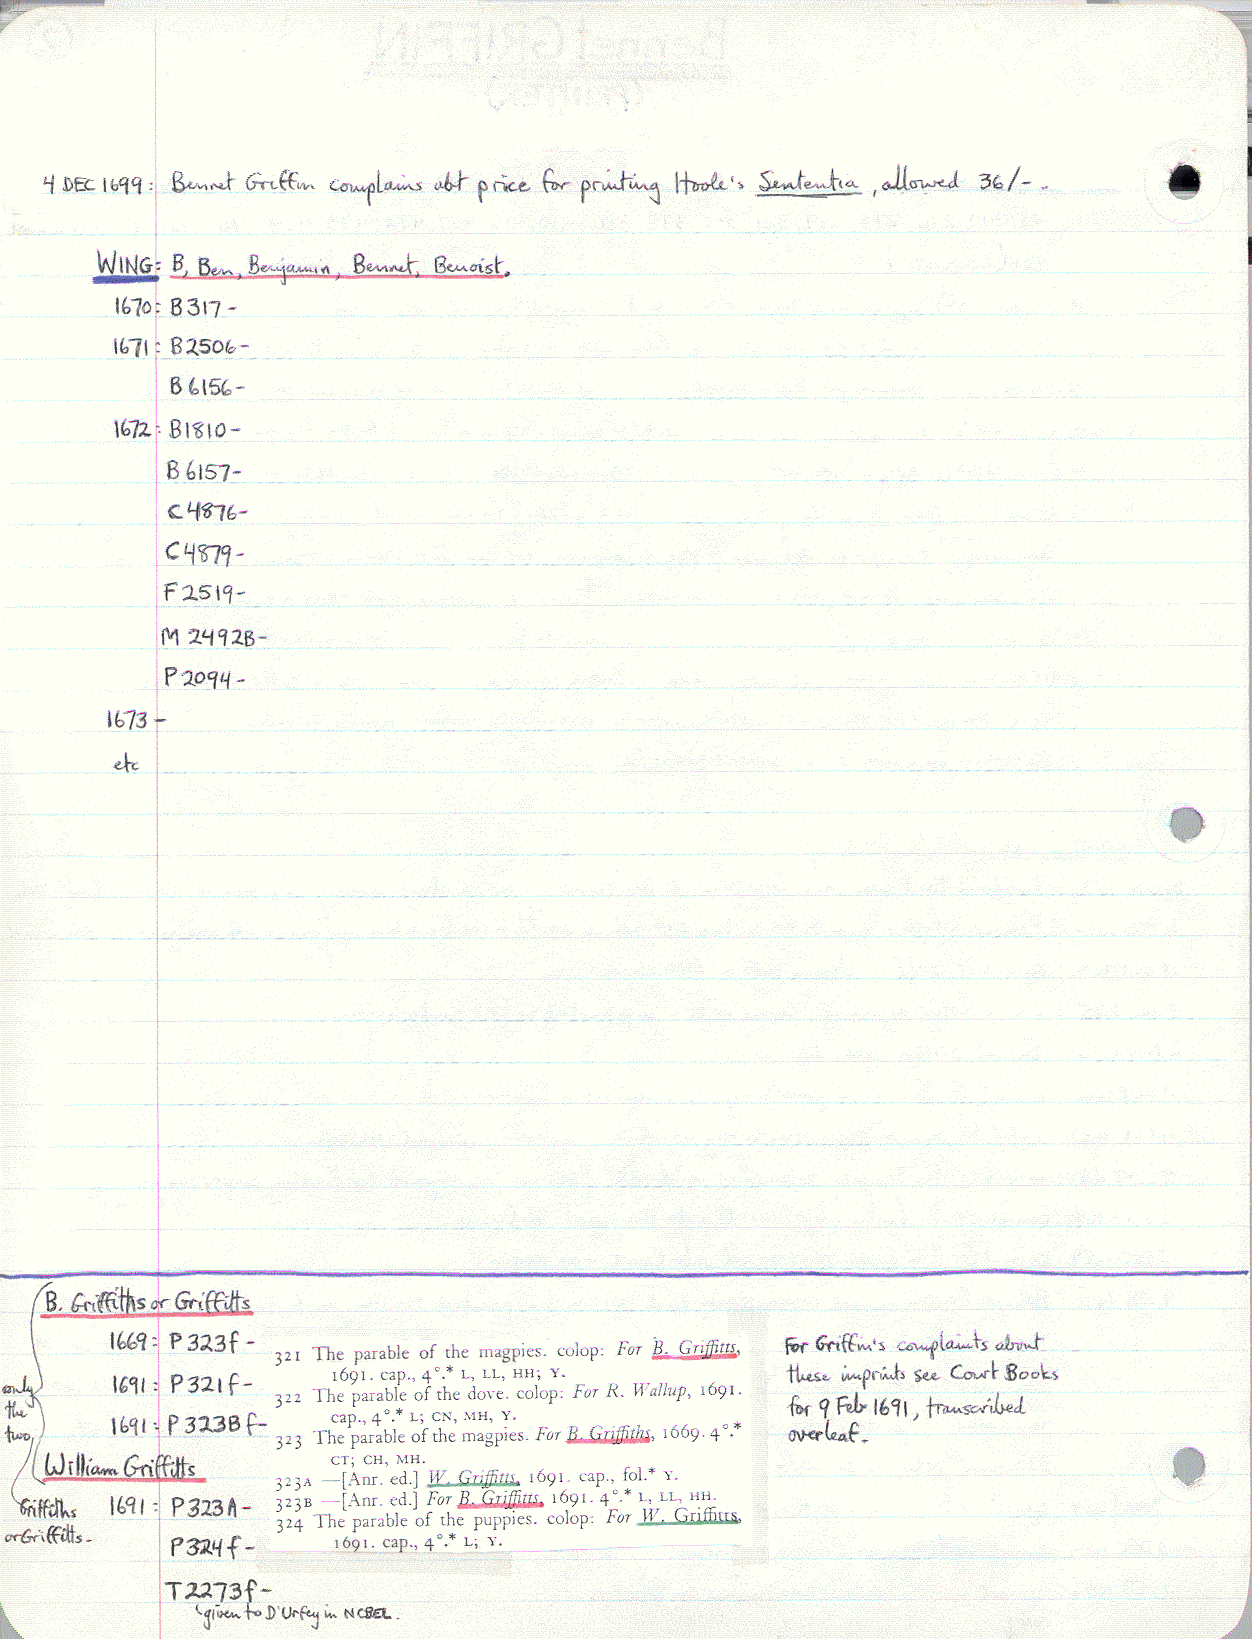 4 DEC 1699: Bennet Griffin complains abt price for printing Hoole's Sententia, allowed 36/-.
WING: B, Ben, Benjamin, Bennet, Benoist.
1670: B317-
1671: B2506-
B6156-
1672: B1810-
B6157-
C4876-
C4879-
F2519-
M2492B-
P2094-
1673-
etc
B. Griffiths or Griffitts
1669: P323f-
1691: P321f-
1691: P323Bf-
William Griffitts
1691: P323A-
P324f-
T2273f-
given to D'Urfey in NCBEL.
only
the
two,
Griffiths
or Griffitts-
321 The parable of the magpies. colop: For B. Griffitts,
1691. cap., 4°.* L, LL, HH; Y.
322 The parable of the dove. colop: For R. Wallup, 1691.
cap., 4°.* L; CN, MH, Y.
323 The parable of the magpies. For B. Griffiths, 1669. 4°.*
CT; CH, MH.
323A —[Anr. ed.] W. Griffitts, 1691. cap., fol.* Y.
323B —[Anr. ed.] For B. Griffitts, 1691. 4°.* L, LL, HH.
324 The parable of the puppies. colop: For W. Griffitts,
1691. cap., 4°.* L; Y.
For Griffin's complaints about
these imprints see Court Books
for 9 Feb 1691, transcribed
overleaf.
Bennet GRIFFIN